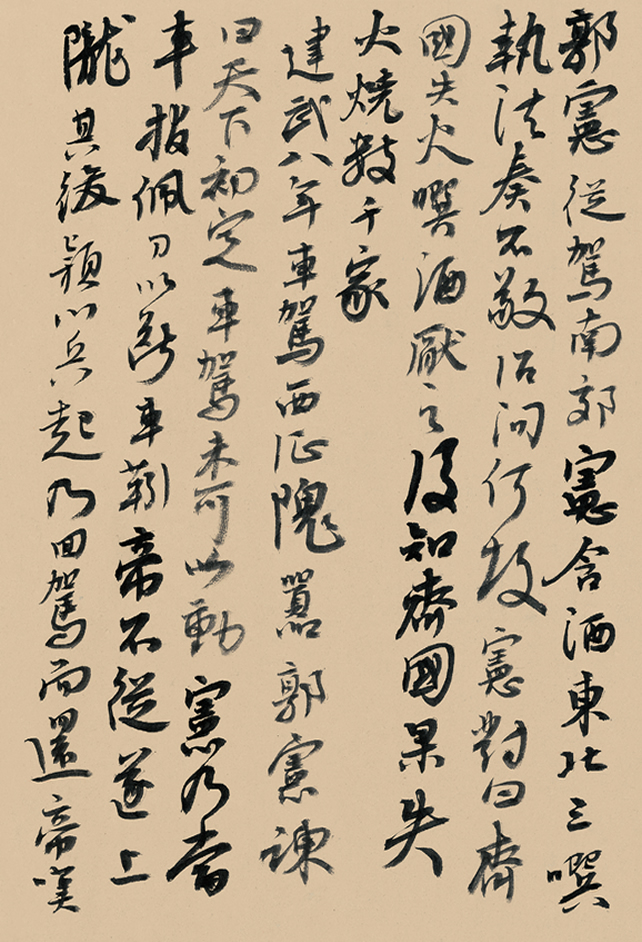 郭憲從駕南郊憲含酒東北三噀
執法奏不敬詔問何故憲對曰齊
國失火噀酒厭之後知齊國果失
火燒數千家
建武八年車駕西征隗囂郭憲諫
曰天下初定車駕未可以動憲乃當
車指佩刀以斷車靷帝不從遂上
隴其後潁川兵起乃回駕而還帝嘆